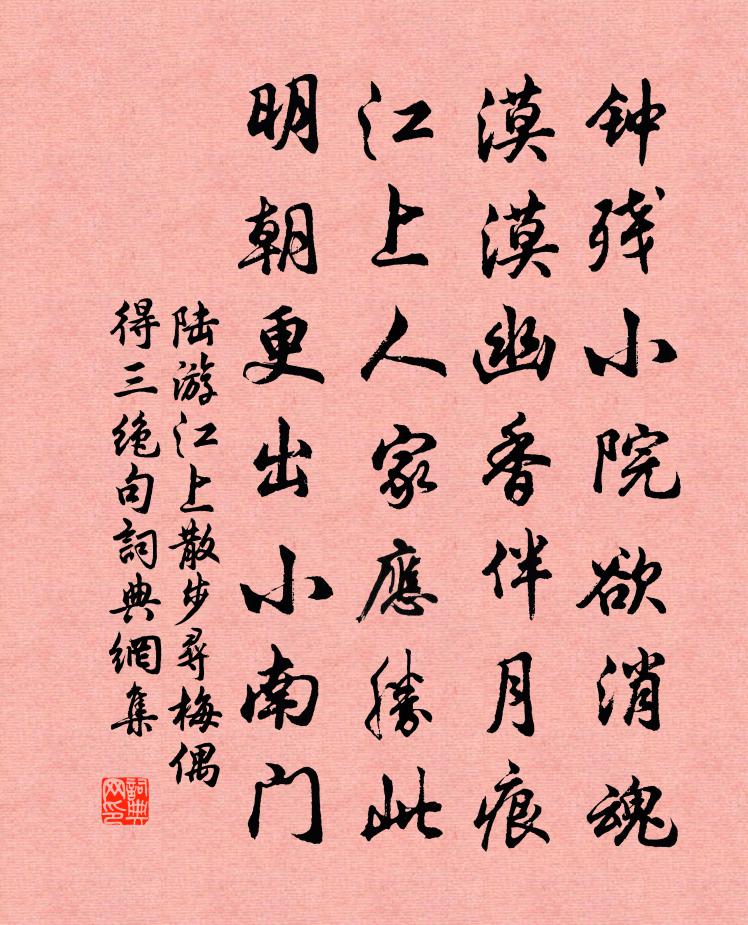 钟残小院欲消魂
漠漠幽香伴月痕
江上人家應勝此
明朝更出小南门
陆游江上散步尋梅偶
得三绝句詞典網集
詞典
网印